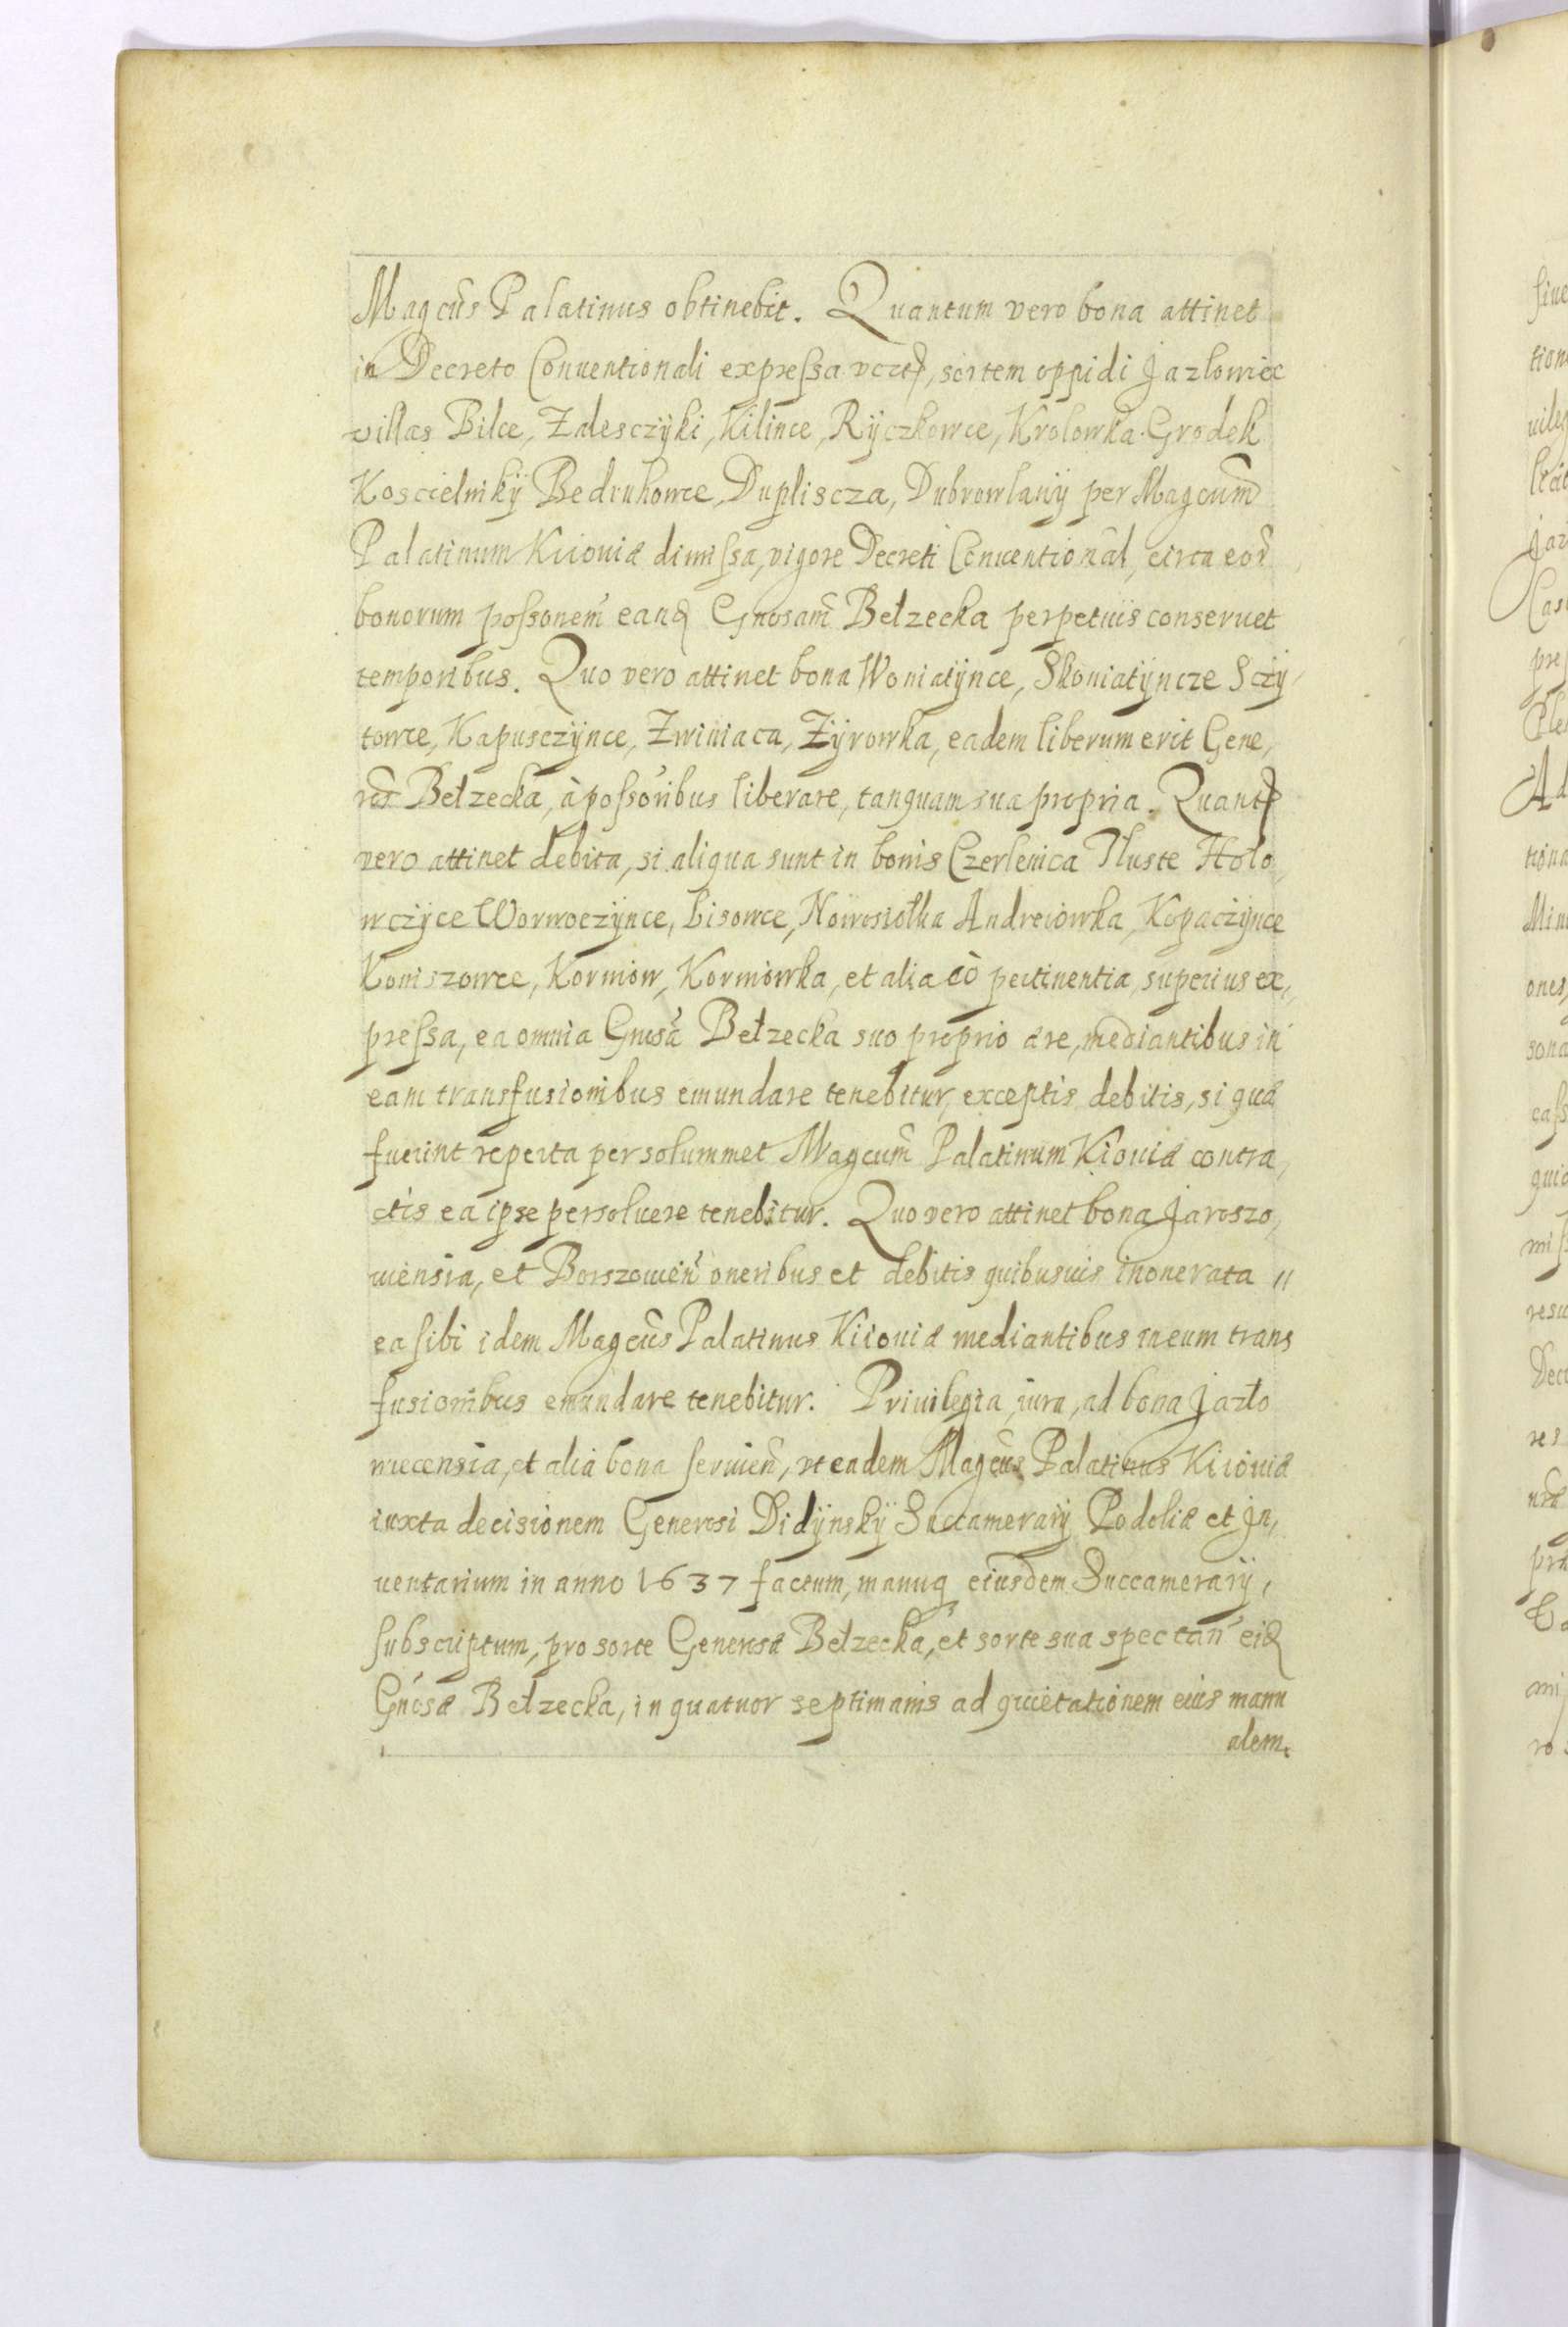 Magcus Palatinus obtinebit. Quantum vero bona attinet
in Decreto Conuentionali expressa vczt, sortem oppidi Jazlowiec
villas Bilce, Zalesczÿki, Kilince, Rÿczkowce, Krolowka Grodek
Koscielnikÿ Bedrukowce, Dupliscza, Dubrowlanÿ per Magcum
Palatinum Kiiouiæ dimissa, vigore Decreti Conuentional, circa eor
bonorum possonem eand Gnosam Bełzecka perpetuis conseruet
temporibus. Quo vero attinet bona Woniatÿnce, Skoniatÿncze Sczÿ,
towce, Kapusczÿnce, Zwiniaca, Żÿrowka, eadem liberum erit Gene,
ros Bełzecka, à possoribus liberare, tanquam sua propria. Quant
vero attinet debita, si aliqua sunt in bonis Czerlenica Tłuste Hoło,
wczÿce Worwoczÿnce, Lisowce, Nowosiołka Andreiowka, Kopaczÿnce
Koniszowce, Korniow, Korniowka, et alia eò pertinentia, superius ex,
pressa, ea omnia Gnosa Bełzecka suo proprio ære, mediantibus in
eam transfusionibus emundare tenebitur, exceptis debitis, si quæ
fuerint reperta per solummet Magcum Palatinum Kiouiæ contra,
ctis ea ipse persoluere tenebitur. Quo vero attinet bona Jaroszo,
uiensia, et Borszouien oneribus et debitis quibusuis inonerata //
ea sibi idem Magcus Palatinus Kiiouiæ mediantibus in eum trans
fusionibus emundare tenebitur. Priuilegia, iura, ad bona Jazło
wiecensia, et alia bona seruien, vt eadem Magcus Palatinus Kiiouiæ
iuxta decisionem Generosi Didÿnskÿ Succamerarÿ Podoliæ et In,
uentarium in anno 1637 factum, manuq eiusdem Succamerarÿ,
subscriptum, pro sorte Generosæ Bełzecka, et sorte sua spectan eid
Gnosæ Bełzecka, in quatuor septimanis ad quietationem eius manu
alem.